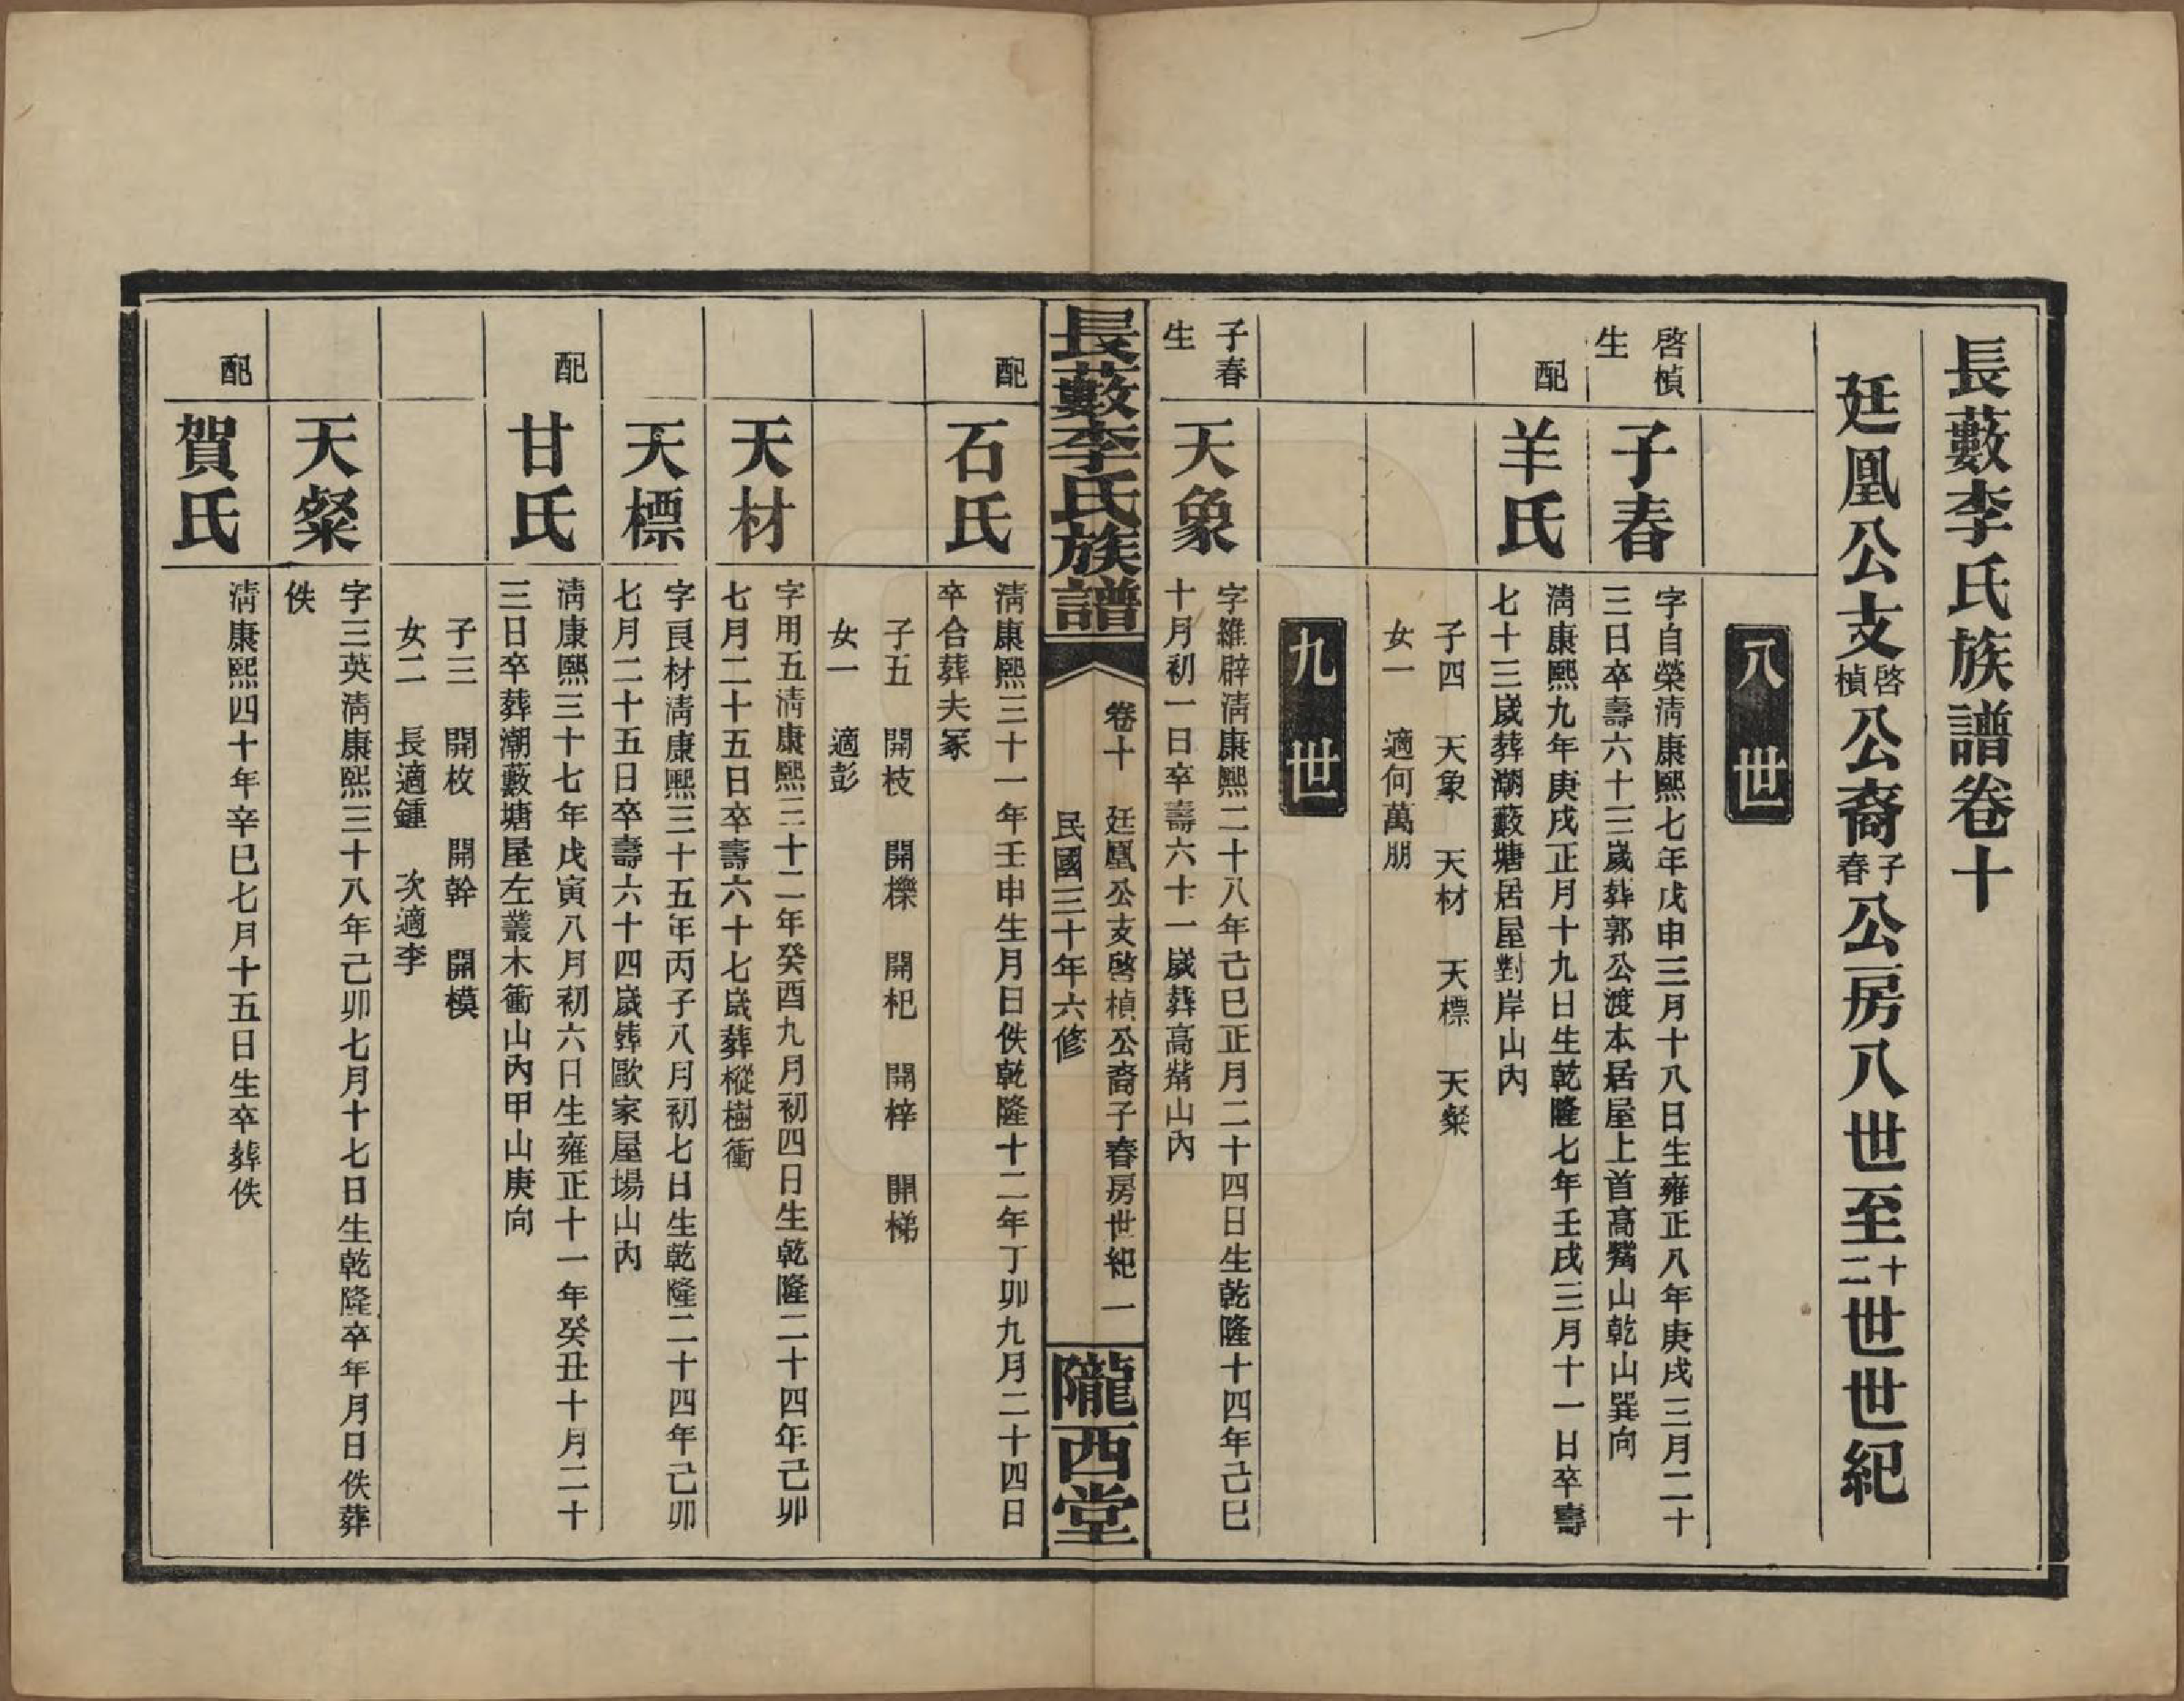 長藪李氏族譜卷十
廷凰公支啓楨公裔子春公房八世至十二世世紀
八世
啓楨
生
子春
字自榮淸康熙七年戊申三月十八日生雍正八年庚戌三月二十
三日卒壽六十三歲葬郭公渡本居屋上首高觜山乾山巽向
配
羊氏
淸康熙九年庚戌正月十九日生乾隆七年壬戌三月十一日卒壽
七十三歲葬潮藪塘居屋對岸山內
子四　天象　天材　天標　天粲
女一　適何萬朋
九世
子春
生
天象
字維辟淸康熙二十八年己巳正月二十四日生乾隆十四年己巳
十月初一日卒壽六十一歲葬高觜山內
長藪李氏族譜
卷十　廷凰公支啓楨公裔子春房世紀　一
民國三十年六修
隴西堂
配
石氏
淸康熙三十一年壬申生月日佚乾隆十二年丁卯九月二十四日
卒合葬夫冢
子五　開枝　開櫟　開杞　開梓　開梯
女一　適彭
天材
字用五淸康熙三十二年癸酉九月初四日生乾隆二十四年己卯
七月二十五日卒壽六十七歲葬樅樹衝
天標
字良材淸康熙三十五年丙子八月初七日生乾隆二十四年己卯
七月二十五日卒壽六十四歲葬歐家屋場山內
配
甘氏
淸康熙三十七年戊寅八月初六日生雍正十一年癸丑十月二十
三日卒葬潮藪塘屋左叢木衝山內甲山庚向
子三　開枚　開幹　開模
女二　長適鍾　次適李
天粲
字三英淸康熙三十八年己卯七月十七日生乾隆卒年月日佚葬
佚
配
賀氏
淸康熙四十年辛巳七月十五日生卒葬佚